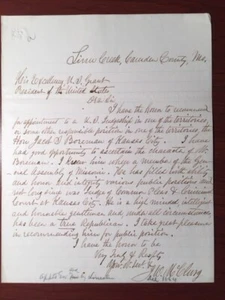 Linn Creek, Camden County, Mo.
His Excellency U.S. Grant
President of the United States
Dear Sir
I have the honor to recommend
for appointment to a U.S. Judgeship in one of the territories,
or some other responsible position in one of the territories, the
Hon. Jacob S. Boreman of Kansas City. I have
had good opportunity to ascertain the character of Mr.
Boreman. I knew him when a member of the Gen-
eral Assembly of Missouri. He has filled with ability
and honor and integrity various public positions
Court at Kansas City. He is a high minded, intelligent
and honorable gentleman, and under all circumstances
has been a true Republican. I take great pleasure
in recommending him for public position.
I have the honor to be
Very
J. W. McClurg